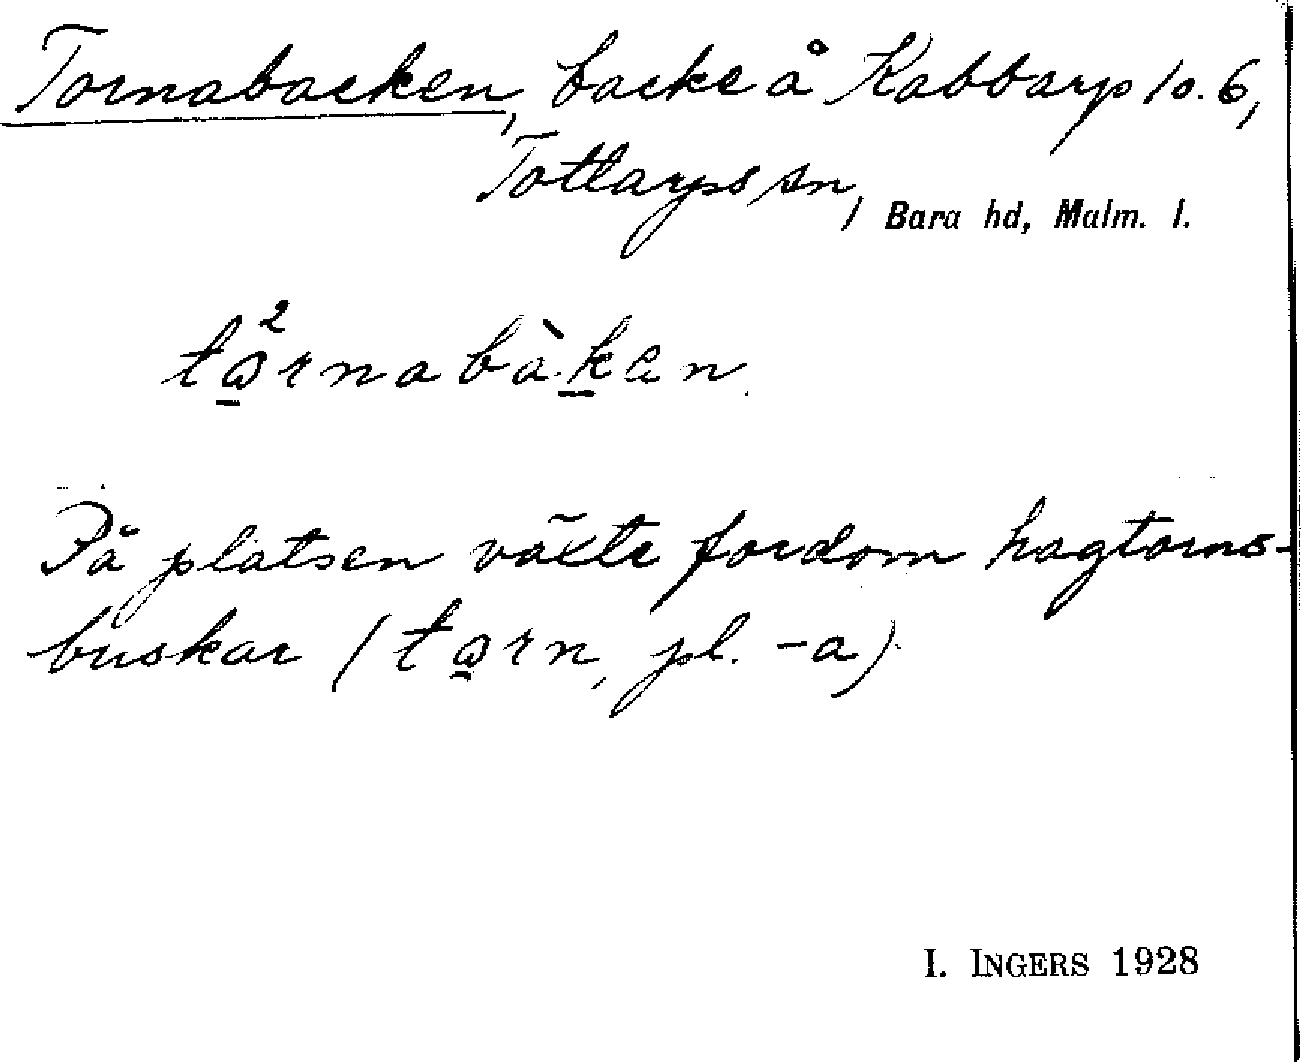 Tornabacken, backe å Kabbarp 10.6,
Tottarps sn, Bara hd, Malm. l.
tə̱²rnabà.ḵen.
På platsen växte fordom hagtorns-
buskar (tə̱rn, pl. -a).
I. INGERS 1928